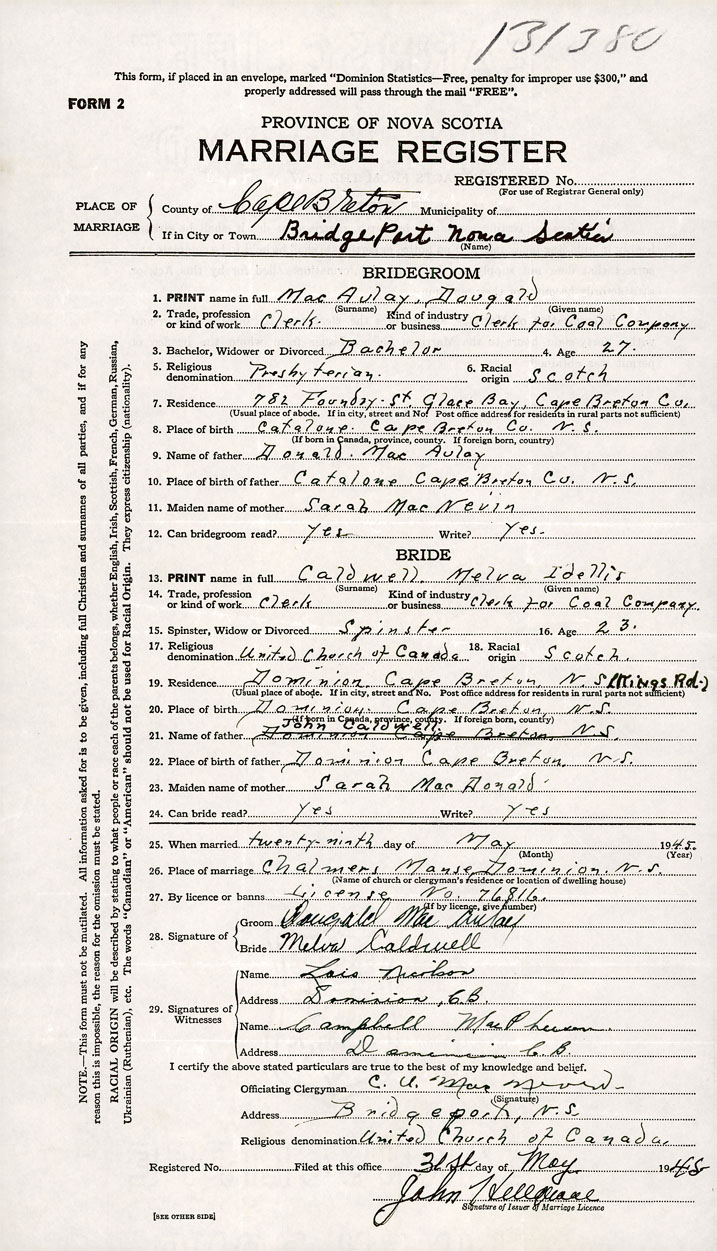 131380
This form, if placed in an envelope, marked "Dominion Statistics—Free, penalty for improper use $300," and
properly addressed will pass through the mail "FREE".
FORM 2
PROVINCE OF NOVA SCOTIA
MARRIAGE REGISTER
REGISTERED No.
(For use of Registrar General only)
PLACE OF MARRIAGE
County of Cape Breton Municipality of
If in City or Town Bridge Port Nova Scotia
(Name)
BRIDEGROOM
1. PRINT name in full Mac Aulay, Dougald
(Surname) (Given name)
2. Trade, profession or kind of work Clerk. Kind of industry or business Clerk for Coal Company
3. Bachelor, Widower or Divorced Bachelor 4. Age 27.
5. Religious denomination Presbyterian. 6. Racial origin Scotch
7. Residence 782 Foundry St. Glace Bay, Cape Breton Co.
(Usual place of abode. If in city, street and No. Post office address for residents in rural parts not sufficient)
8. Place of birth Catalone. Cape Breton Co. N.S.
(If born in Canada, province, county. If foreign born, country)
9. Name of father Donald. Mac Aulay
10. Place of birth of father Catalone Cape Breton Co. N.S.
11. Maiden name of mother Sarah Mac Nevin
12. Can bridegroom read? Yes Write? Yes.
BRIDE
13. PRINT name in full Caldwell, Melva Idellis
(Surname) (Given name)
14. Trade, profession or kind of work Clerk Kind of industry or business Clerk for Coal Company.
15. Spinster, Widow or Divorced Spinster 16. Age 23.
17. Religious denomination United Church of Canada 18. Racial origin Scotch.
19. Residence Dominion, Cape Breton, N.S. (Kings Rd.)
(Usual place of abode. If in city, street and No. Post office address for residents in rural parts not sufficient)
20. Place of birth Dominion. Cape Breton N.S.
(If born in Canada, province, county. If foreign born, country)
John Caldwell.
21. Name of father Dominion Cape Breton, N.S.
22. Place of birth of father Dominion Cape Breton, N.S.
23. Maiden name of mother Sarah Mac Donald
24. Can bride read? Yes Write? Yes
25. When married twenty-ninth day of May 1945.
(Month) (Year)
26. Place of marriage Chalmers Manse, Dominion. N.S.
(Name of church or clergyman's residence or location of dwelling house)
27. By licence or banns License No. 76816.
(If by licence, give number)
28. Signature of
Groom Dougald Mac Aulay
Bride Melva Caldwell
29. Signatures of Witnesses
Name Lois Nicolson
Address Dominion, C.B.
Name Campbell MacPherson.
Address Dominion C.B.
I certify the above stated particulars are true to the best of my knowledge and belief.
Officiating Clergyman C. U. Mac
(Signature)
Address Bridgeport, N.S.
Religious denomination United Church of Canada.
Registered No. Filed at this office 31st day of May 1945
John
Signature of Issuer of Marriage Licence
[SEE OTHER SIDE]
NOTE.—This form must not be mutilated. All information asked for is to be given, including full Christian and surnames of all parties, and if for any
reason this is impossible, the reason for the omission must be stated.
RACIAL ORIGIN will be described by stating to what people or race each of the parents belongs, whether English, Irish, Scottish, French, German, Russian,
Ukrainian (Ruthenian), etc. The words "Canadian" or "American" should not be used for Racial Origin. They express citizenship (nationality).